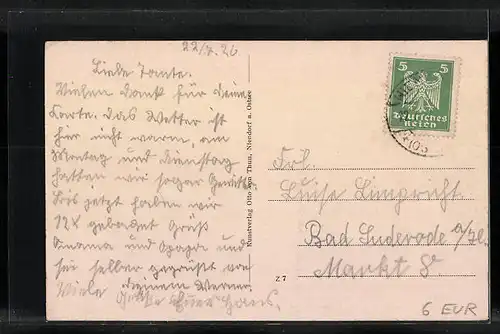 22/7.26
Liebe Tante.
Vielen Dank für Deine
Karte. Das Wetter ist
hier nicht warm, am
Montag und Dienstag
hatten wir sogar Gewitter.
Bis jetzt haben wir
12x gebadet Grüß
Omama und Opapa und
sei selber gegrüßt von
Deinem Werner.
Viele Grüße Euer Hans.
Kunstverlag Otto von Thun, Niendorf a. Ostsee
Z 7
5 5
Deutsches
Reich
Frl.
Luise Limpricht
Bad Suderode a/Hz.
Markt 8
6 EUR